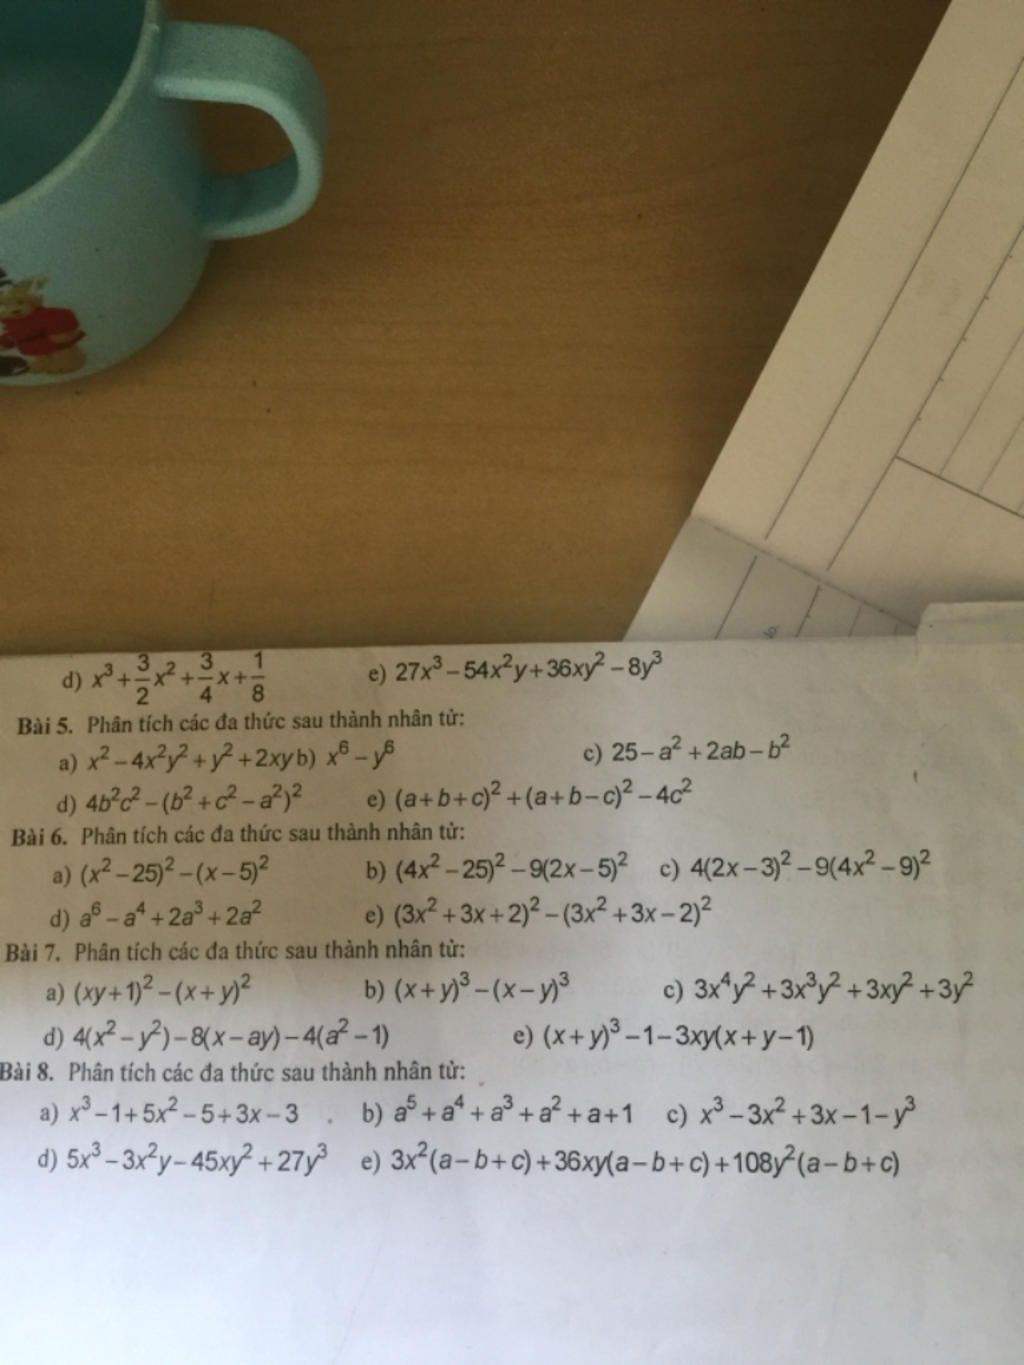 d) x³ + 3/2 x² + 3/4 x + 1/8 e) 27x³ – 54x²y + 36xy² – 8y³
Bài 5. Phân tích các đa thức sau thành nhân tử:
a) x² – 4x²y² + y² + 2xy b) x⁶ – y⁶ c) 25 – a² + 2ab – b²
d) 4b²c² – (b² + c² – a²)² e) (a + b + c)² + (a + b – c)² – 4c²
Bài 6. Phân tích các đa thức sau thành nhân tử:
a) (x² – 25)² – (x – 5)² b) (4x² – 25)² – 9(2x – 5)² c) 4(2x – 3)² – 9(4x² – 9)²
d) a⁶ – a⁴ + 2a³ + 2a² e) (3x² + 3x + 2)² – (3x² + 3x – 2)²
Bài 7. Phân tích các đa thức sau thành nhân tử:
a) (xy + 1)² – (x + y)² b) (x + y)³ – (x – y)³ c) 3x⁴y² + 3x³y² + 3xy² + 3y²
d) 4(x² – y²) – 8(x – ay) – 4(a² – 1) e) (x + y)³ – 1 – 3xy(x + y – 1)
Bài 8. Phân tích các đa thức sau thành nhân tử:
a) x³ – 1 + 5x² – 5 + 3x – 3 b) a⁵ + a⁴ + a³ + a² + a + 1 c) x³ – 3x² + 3x – 1 – y³
d) 5x³ – 3x²y – 45xy² + 27y³ e) 3x²(a – b + c) + 36xy(a – b + c) + 108y²(a – b + c)